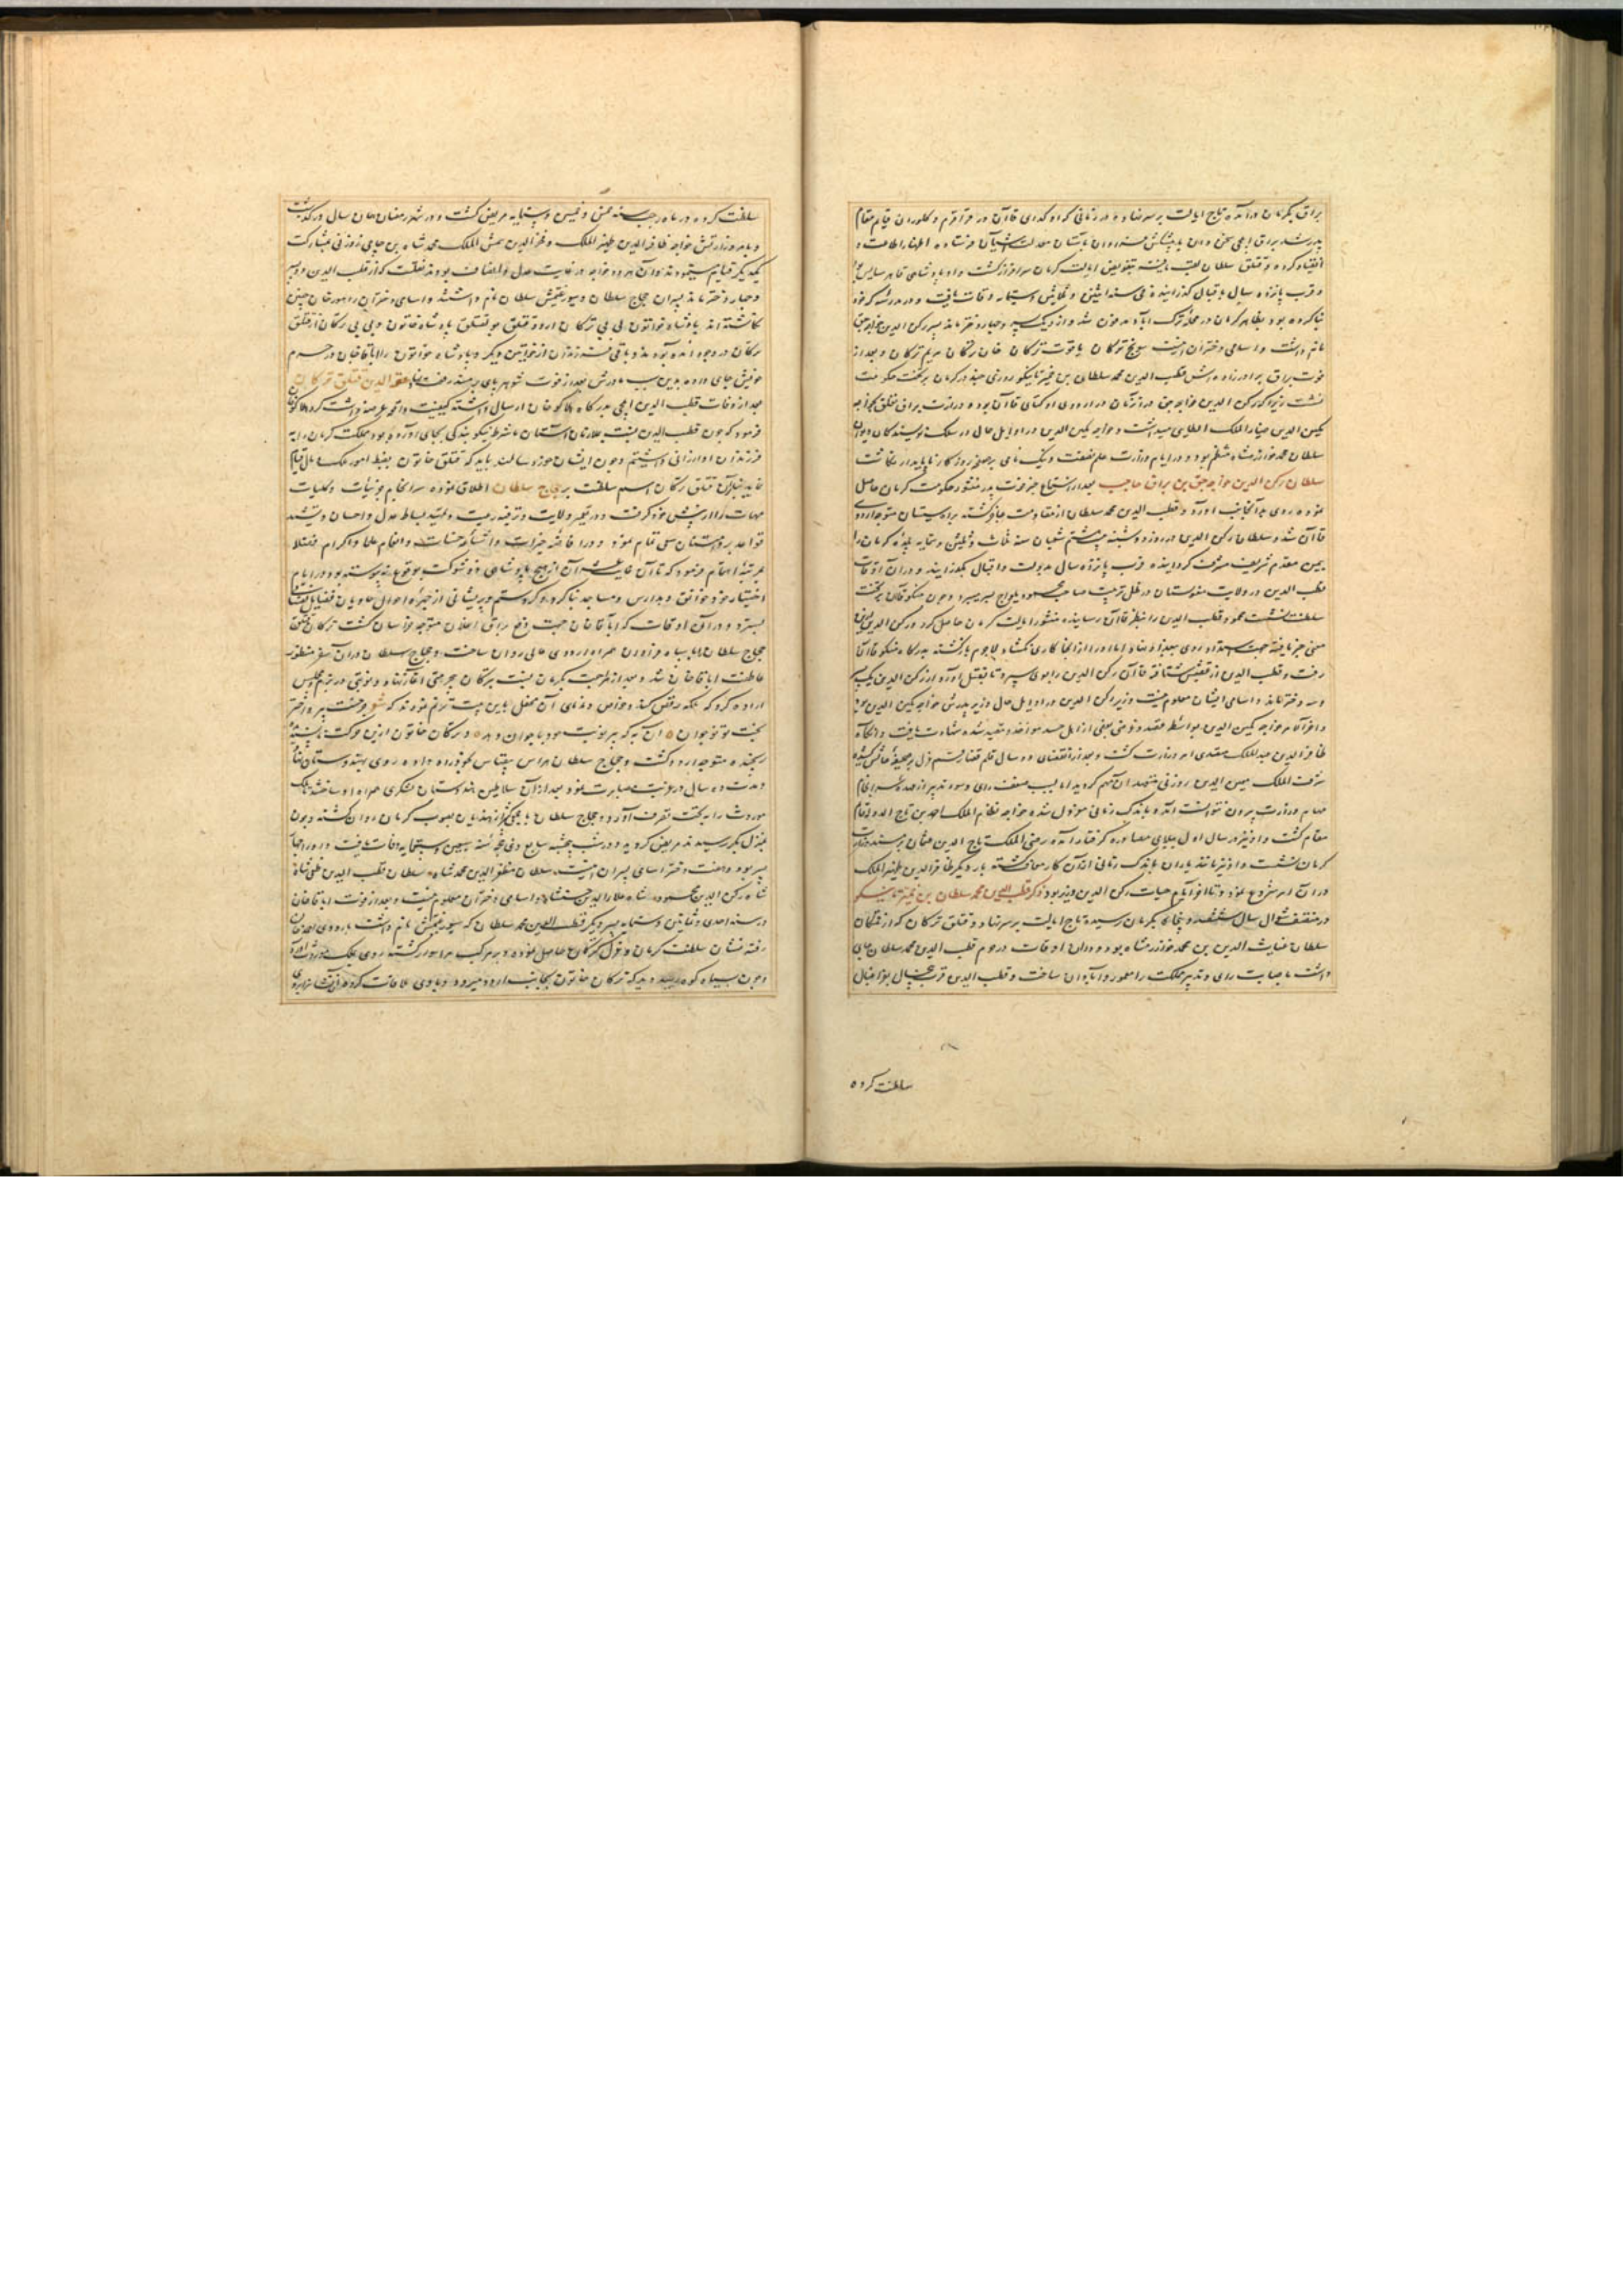 براق بکرمان درآمده تاج ایالت بر سر نهاد و در زمانی که اوکدای قاآن در قراقرم و کلوران قایم مقام
پدر شد براق ایلچی سخن دان با پیشکش فراوان بآستان فرستاده اظهار اطاعت و
انقیاد کرد و قتلق سلطان لقب یافته بتفویض ایالت کرمان سرافراز کشت و او پادشاهی قاهر سایس بود
و قرب پانزده سال باقبال کذرانیده فی سنه اثنین و ثلاثین و ستمایه وفات یافت و در مدرسه که خود
بنا کرده بود بظاهر کرمان در محله ترک آباد مدفون شد و از وی یک پسر و چهار دختر ماند پسر رکن الدین خواجه جق
نام داشت و اسامی دختران اینست سونج ترکان یاقوت ترکان خان ترکان مریم ترکان و بعد از
فوت براق برادرزاده‌اش قطب الدین محمد سلطان بن خمیر تاینکو روزی چند در کرمان بر تخت حکومت
نشست زیرا که رکن الدین خواجه جق در آن زمان در اردوی اوکتای قاآن بود و وزارت براق قتلق بخواجه
مکین الدین ضیاء الملک میداشت و خواجه مکین الدین در اوایل حال در سلک نویسندکان دیوان
سلطان محمد خوارزمشاه منتظم بود و در ایام وزارت علم و نیک نامی بر صحیفه روزکار ناپایدار نکاشت
سلطان رکن الدین خواجه جق بن براق حاجب بعد از استماع خبر فوت پدر منشور حکومت کرمان حاصل
نموده روی بدآنجانب آورد و قطب الدین محمد سلطان از مقاومت عاجز کشته براه سیستان متوجه اردوی
قاآن شد و سلطان رکن الدین در روز دوشنبه بیست و هشتم شعبان سنه ثلاث و ثلثین و ستمایه بلده کرمان را
بیمن مقدم شریف مشرف کردانیده قرب پانزده سال بدولت و اقبال بکذرانید و در آن اوقات
قطب الدین در ولایت در ظل تربیت صاحب محمود یلواج بسر میبرد و چون منکو قاآن بر تخت
سلطنت نشست محمود قطب الدین را بنظر قاآن رسانیده منشور ایالت کرمان حاصل کرد و رکن الدین ازین
معنی خبر یافته روی ببغداد نهاد اما او را از آنجا کاری نکشاد لاجرم بازکشته بدرکاه منکو قاآن
رفت و قطب الدین از عقبش شتافته قاآن رکن الدین را بوی سپرد تا بقتل آورد و از رکن الدین یک پسر
و سه دختر ماند و اسامی ایشان معلوم نیست و زیر رکن الدین در اوایل حال وزیر پدرش خواجه مکین الدین بود
و آخر الامر خواجه مکین الدین بواسطه قصد و بعضی از اهل حسد مواخذ و مقید شده شهادت یافت و آنکاه
ظافر الدین عبد الملک متصدی امر وزارت کشت و بعد از انقضای دو سال قلم قضا رقم عزل بر صحیفه حالش کشیده
شرف الملک معین الدین زوزنی متعهد آن مهم کردید اما بسبب ضعف رای و سوء تدبیر از عهده سرانجام
مهام وزارت بیرون نتوانست آمد و باندک زمانی معزول شده خواجه نظام الملک احمد بن تاج الدین قایم
مقام کشت و او نیز در سال اول ببلای مصادره کرفتار آمده رضی الملک تاج الدین عثمان بر مسند وزارت
کرمان نشست و او نیز مانند یاران باندک زمانی از آن کار معاف کشته بار دیکر ظافر الدین ظهیر الملک
در آن امر شروع نمود و تا آخر ایام حیات رکن الدین وزیر بود ذکر قطب الدین محمد سلطان بن خمیر تاینکو
در منتصف شوال سال ششصد و پنجاه بکرمان رسیده تاج ایالت بر سر نهاد و قتلق ترکان که از
سلطان غیاث الدین بن محمد خوارزمشاه بود و در آن اوقات در حرم قطب الدین محمد سلطان جای
داشت باصابت رای و تدبیر مملکت را معمور و آبادان ساخت و قطب الدین قرب سال باقبال
سلطنت کرده
سلطنت کرده در ماه رجب سنه خمس و خمسین و ستمایه مریض کشت و در شهر رمضان همان سال درکذشت
و بامر وزارتش خواجه ظافر الدین ظهیر الملک و فخر الدین شمس الملک محمد شاه بن حاجی زوزنی بمشارکت
یکدیکر قیام مینمودند و آن هر دو خواجه در غایت عدل و انصاف بودند نقلست که از قطب الدین دو پسر
و چهار دختر ماند پسران حجاج سلطان و سیورغتمش سلطان نام داشتند و اسامی دختران را مورخان چنین
نکاشته‌اند پادشاه خواتون بی بی ترکان اردو قتلق یول قتلق پادشاه خاتون و بی بی ترکان از قتلق
ترکان در وجود آمده بودند و باقی فرزندان از خواتین دیکر و پادشاه خواتون را اباقا خان در حرم
خویش جای داده بدین سبب مادرش بعد از فوت شوهر پای بر مسند رفعت نهاد عصمة الدین قتلق ترکان
بعد از وفات قطب الدین ایلچی بدرکاه هلاکو خان ارسال داشته کیفیت واقعه عرضه داشت کرد هلاکو خان
فرمود که چون قطب الدین نسبت بملازمان آستان ما شرط نیکو بندکی بجای آورده بود مملکت کرمان را به
فرزندان او ارزانی داشتیم و چون ایشان خورد سالند باید که قتلق خاتون بضبط امور ملک و مال قیام
نماید بنابرآن قتلق ترکان اسم سلطنت بر حجاج سلطان اطلاق نموده سرانجام جزئیات و کلیات
مهمات را از پیش خود کرفت و در تعمیر ولایت و ترفیه رعیت و تمهید بساط عدل و احسان و تشیید
قواعد بر و امتنان سعی تمام نمود و در افاضه خیرات و اشاعه حسنات و انعام علما و اکرام فضلا
بمرتبه اهتمام فرمود که تا آن غایت عشر آن از هیچ پادشاهی ذو شوکت بوقوع نه پیوسته بود در ایام
اختیار خود خوانق و مدارس و مساجد بنا کرد و کرد ستم و پریشانی از چهره احوال حاویان فضایل نفسانی
بسترد و در آن اوقات که اباقا خان جهت دفع براق اغلان متوجه خراسان کشت ترکان قتلق
حجاج سلطان را با سپاه فراوان همراه اردوی عالی روان ساخت و حجاج سلطان در آن سفر منظور
عاطفت اباقا خان شد و بعد از مراجعت بکرمان نسبت بترکان بیحرمتی آغاز نهاد و نوبتی در بزم مجلس
اراده کرد که ملکه رقص کند و خواص و ندمای آن محفل باین بیت ترنم نمودند که شعر چرخست پیر و اختر
بخت تو نوجوان آن به که پیر نوبت خود با جوان دهد و ترکان خاتون ازین حرکت
رنجیده متوجه اردو کشت و حجاج سلطان هراس بیقیاس بخود راه داده روی بهندوستان نهاد
و مدت ده سال در غربت مصابرت نمود بعد از آن سلاطین هندوستان لشکری همراه او ساختند تا ملک
موروث را بتحت تصرف آورد و حجاج سلطان با از هندیان بصوب کرمان روان کشته و چون
بمنزل بکر رسید مریض کردید و در شب پنجشنبه سابع ذی حجه سنه وفات یافت و او را
پسر بود و دختر اسامی پسران اینست سلطان مظفر الدین محمد شاه سلطان قطب الدین طغی شاه
شاه رکن الدین محمود شاه علاء الدین حسن شاه و اسامی دختران معلوم نیست و بعد از فوت اباقا خان
در سنه احدی و ثمانین و ستمایه پسر دیکر قطب الدین محمد سلطان که سیورغتمش نام داشت باردوی احمد خان
رفته نشان سلطنت کرمان و عزل ترکان حاصل نموده و بر مرکب مراد سوار کشته روی بملک موروث آورد
و چون بسیاه کوه رسید دید که ترکان خاتون بجانب اردو میرود و با وی ملاقات کرد